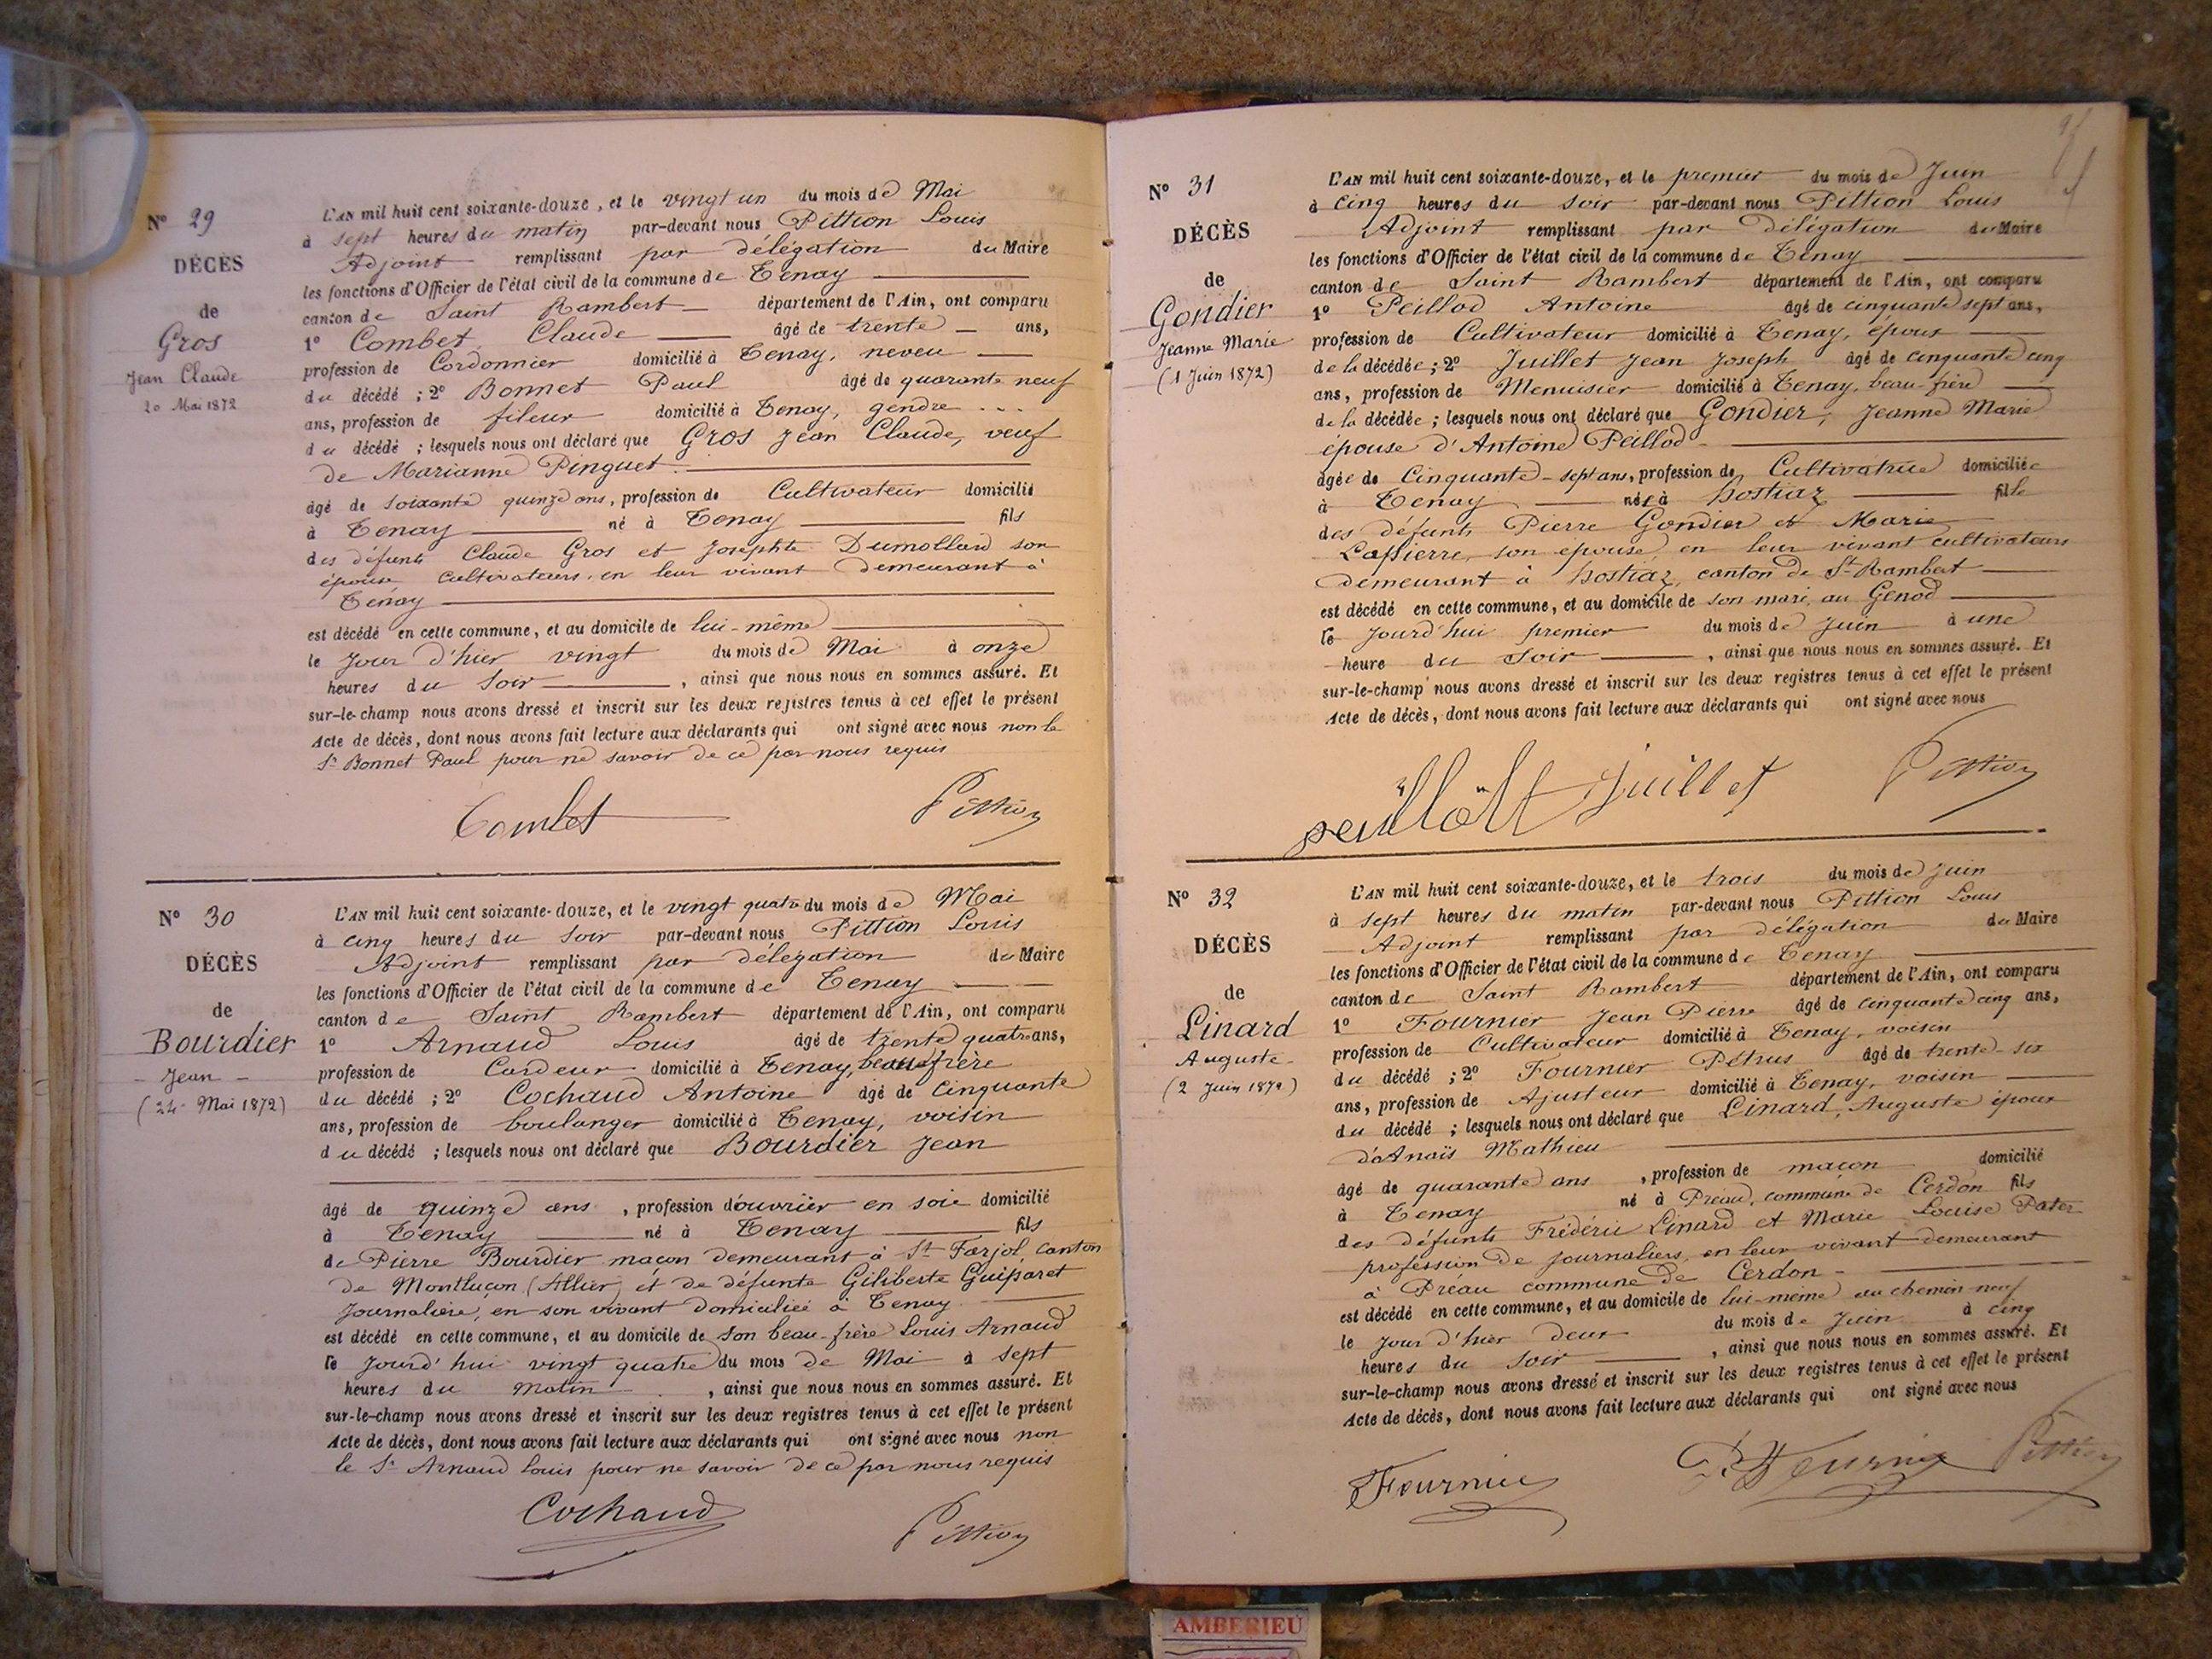 Nº 29
DÉCÈS
de
Gros
Jean Claude
20 Mai 1872
L'AN mil huit cent soixante-douze, et le vingt un du mois de Mai
à sept heures du matin par-devant nous Pittion Louis
Adjoint remplissant par délégation du Maire
les fonctions d'Officier de l'état civil de la commune de Tenay
canton de Saint Rambert département de l'Ain, ont comparu
1º Combet Claude âgé de trente ans,
profession de Cordonnier domicilié à Tenay, neveu
du décédé ; 2º Bonnet Paul âgé de quarante neuf
ans, profession de fileur domicilié à Tenay, gendre
du décédé ; lesquels nous ont déclaré que Gros Jean Claude, veuf
de Marianne Pinguet.
âgé de soixante quinze ans, profession de Cultivateur domicilié
à Tenay né à Tenay fils
des défunts Claude Gros et Josephte Dumollard son
épouse cultivateurs, en leur vivant demeurant à
Tenay
est décédé en cette commune, et au domicile de lui-même
le jour d'hier vingt du mois de Mai à onze
heures du soir, ainsi que nous nous en sommes assuré. Et
sur-le-champ nous avons dressé et inscrit sur les deux registres tenus à cet effet le présent
Acte de décès, dont nous avons fait lecture aux déclarants qui ont signé avec nous non le
Sr Bonnet Paul pour ne savoir de ce par nous requis
Combet Pittion
Nº 30
DÉCÈS
de
Bourdier
Jean
(24 Mai 1872)
L'AN mil huit cent soixante-douze, et le vingt quatre du mois de Mai
à cinq heures du soir par-devant nous Pittion Louis
Adjoint remplissant par délégation du Maire
les fonctions d'Officier de l'état civil de la commune de Tenay
canton de Saint Rambert département de l'Ain, ont comparu
1º Arnaud Louis âgé de trente quatre ans,
profession de Cardeur domicilié à Tenay, beau frère
du décédé ; 2º Cochaud Antoine âgé de Cinquante
ans, profession de boulanger domicilié à Tenay, voisin
du décédé ; lesquels nous ont déclaré que Bourdier Jean
âgé de quinze ans, profession d'ouvrier en soie domicilié
à Tenay né à Tenay fils
de Pierre Bourdier maçon demeurant à St Farjol, canton
de Montluçon (Allier) et de défunte Giliberte Guiparet
journalière, en son vivant domiciliée à Tenay
est décédé en cette commune, et au domicile de son beau-frère Louis Arnaud
le jourd'hui vingt quatre du mois de Mai à sept
heures du matin, ainsi que nous nous en sommes assuré. Et
sur-le-champ nous avons dressé et inscrit sur les deux registres tenus à cet effet le présent
Acte de décès, dont nous avons fait lecture aux déclarants qui ont signé avec nous non
le Sr Arnaud Louis pour ne savoir de ce par nous requis
Cochaud Pittion
Nº 31
DÉCÈS
de
Gondier
Jeanne Marie
(1 Juin 1872)
L'AN mil huit cent soixante-douze, et le premier du mois de Juin
à cinq heures du soir par-devant nous Pittion Louis
Adjoint remplissant par délégation du Maire
les fonctions d'Officier de l'état civil de la commune de Tenay
canton de Saint Rambert département de l'Ain, ont comparu
1º Peillod Antoine âgé de cinquante sept ans,
profession de Cultivateur domicilié à Tenay, époux
de la décédée ; 2º Juillet Jean Joseph âgé de cinquante cinq
ans, profession de Menuisier domicilié à Tenay, beau-frère
de la décédée ; lesquels nous ont déclaré que Gondier, Jeanne Marie
épouse d'Antoine Peillod
âgée de Cinquante-sept ans, profession de Cultivatrice domiciliée
à Tenay née à hostiaz fille
des défunts Pierre Gondier et Marie
Lapierre, son épouse, en leur vivant cultivateurs
demeurant à hostiaz, canton de St Rambert
est décédé en cette commune, et au domicile de son mari, au Genod
le jourd'hui premier du mois de Juin à une
heure du soir, ainsi que nous nous en sommes assuré. Et
sur-le-champ nous avons dressé et inscrit sur les deux registres tenus à cet effet le présent
Acte de décès, dont nous avons fait lecture aux déclarants qui ont signé avec nous
Juillet Pittion
Nº 32
DÉCÈS
de
Linard
Auguste
(2 Juin 1872)
L'AN mil huit cent soixante-douze, et le trois du mois de Juin
à sept heures du matin par-devant nous Pittion Louis
Adjoint remplissant par délégation du Maire
les fonctions d'Officier de l'état civil de la commune de Tenay
canton de Saint Rambert département de l'Ain, ont comparu
1º Fournier Jean Pierre âgé de cinquante cinq ans,
profession de Cultivateur domicilié à Tenay, voisin
du décédé ; 2º Fournier Pétrus âgé de trente-six
ans, profession de Ajusteur domicilié à Tenay, voisin
du décédé ; lesquels nous ont déclaré que Linard, Auguste époux
d'Anaïs Mathieu
âgé de quarante ans, profession de maçon domicilié
à Tenay né à Préau, commune de Cerdon fils
des défunts Frédéric Linard et Marie Louise Pater
profession de journaliers, en leur vivant demeurant
à Préau commune de Cerdon
est décédé en cette commune, et au domicile de lui-même au chemin neuf
le jour d'hier deux du mois de Juin à cinq
heures du soir, ainsi que nous nous en sommes assuré. Et
sur-le-champ nous avons dressé et inscrit sur les deux registres tenus à cet effet le présent
Acte de décès, dont nous avons fait lecture aux déclarants qui ont signé avec nous
Fournier P. Fournier Pittion
AMBERIEU